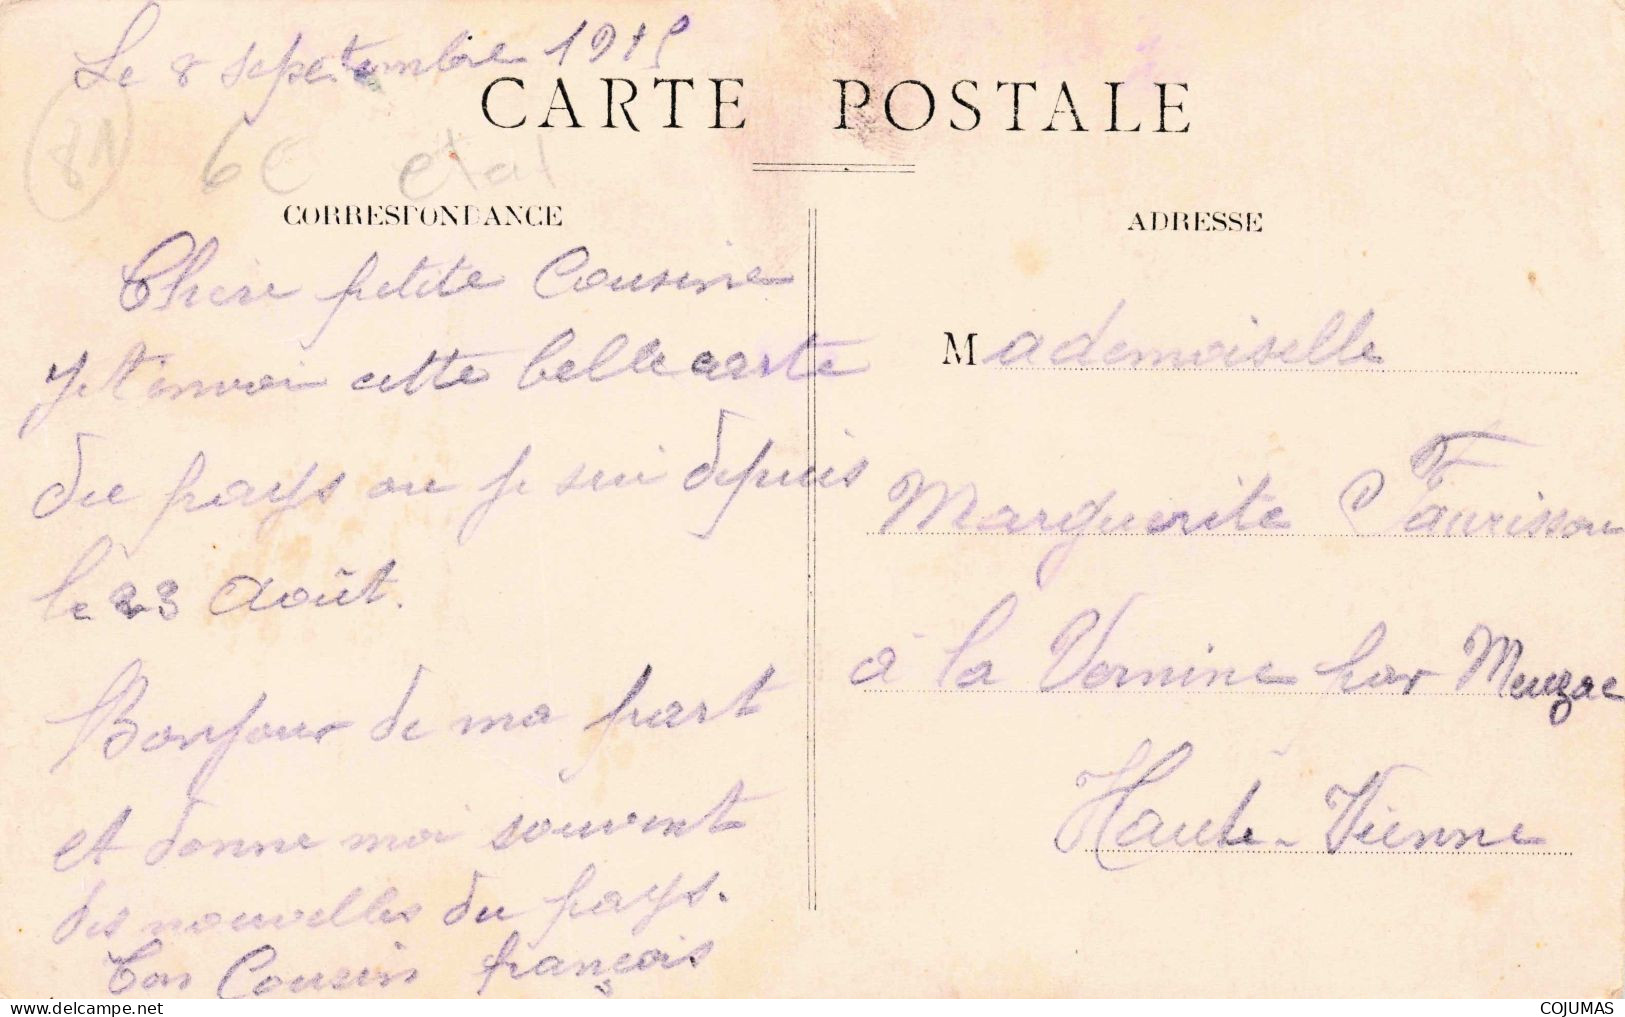 Le 8 septembre 1915
CARTE POSTALE
81
6€
etat
CORRESPONDANCE
ADRESSE
Chère petite Cousine
Je t'envoi cette belle carte
du pays ou je sui depuis
le 23 Août.
Bonjour de ma part
et donne moi souvent
des nouvelles du pays.
Ton Cousin françois
Mademoiselle
Marguerite Faurisson
à la Vernine par Meuzac
Haute-Vienne
COJUMAS